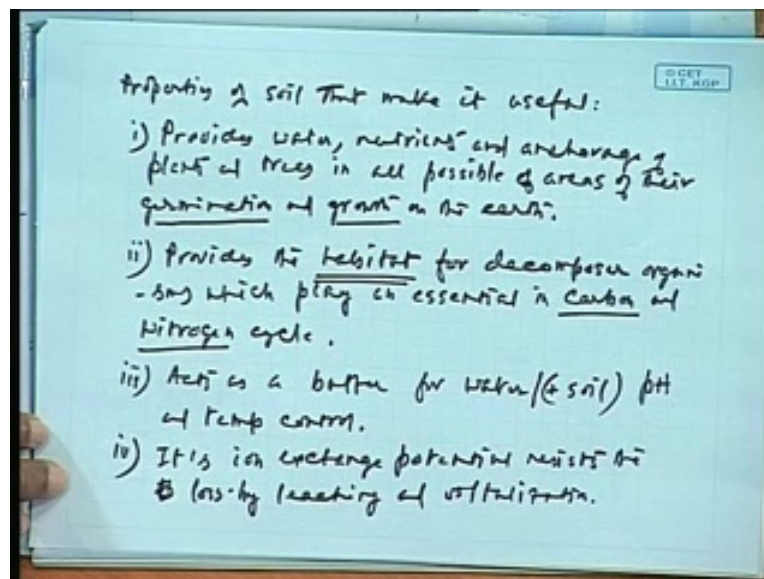 Properties of soil that make it useful:
© CET
I.I.T. KGP
i) Provides water, nutrient and anchorage of
plant and trees in all possible of areas of their
germination and growth on the earth.
ii) Provides the habitat for decomposer organi
-sms which play an essential in carbon and
Nitrogen cycle.
iii) Acts as a buffer for water/(& soil) pH
and temp control.
iv) It is ion exchange potential resists the
loss by leaching and voltalization.